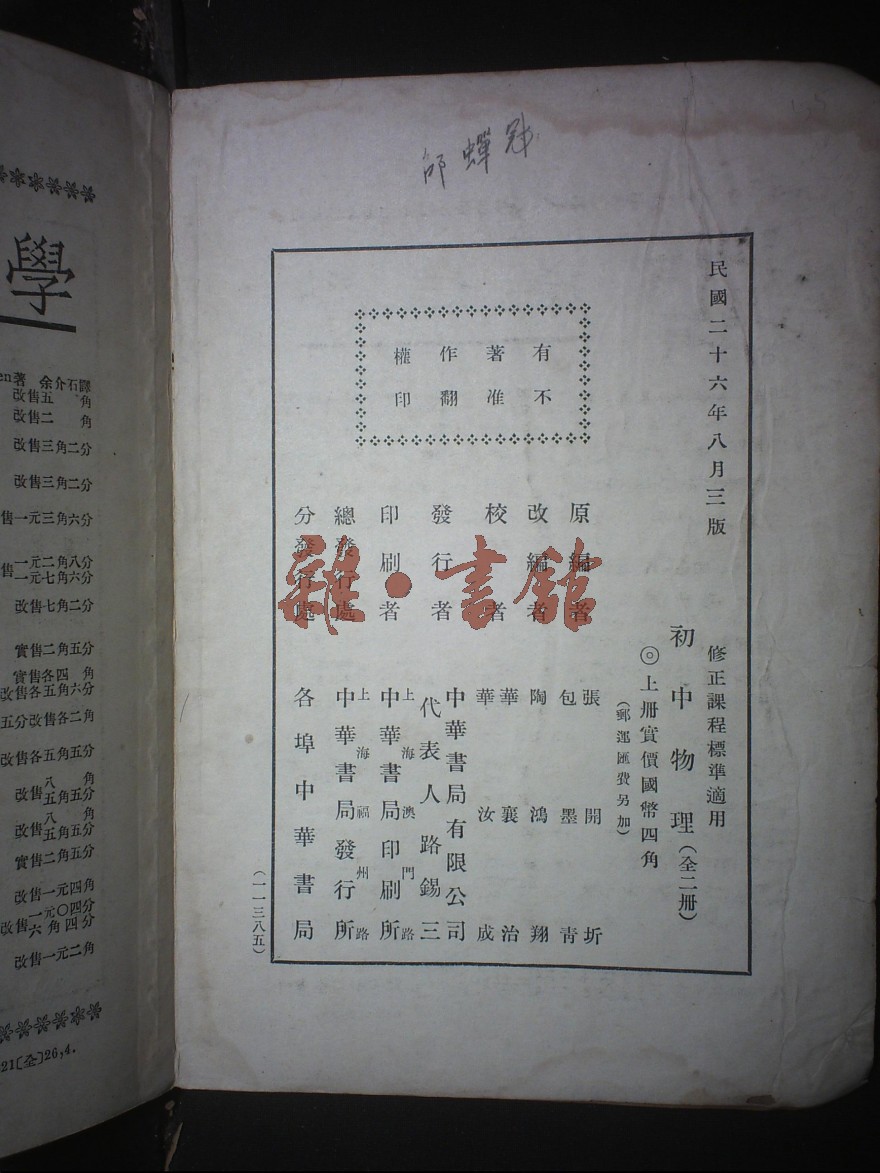 邱蟬冠
民國二十六年八月三版
修正課程標準適用
初中物理(全二冊)
◎上冊實價國幣四角
(郵運匯費另加)
有著作權
不准翻印
原編者 張開圻
包墨青
改編者 陶鴻翔
校者 華襄治
華汝成
發行者 中華書局有限公司
代表人路錫三
印刷者 上海澳門路
中華書局印刷所
總發行處 上海福州路
中華書局發行所
分發行處 各埠中華書局
(一一三八五)
雜·書館
學
en著 余介石譯
改售五角
改售二角
改售三角二分
改售三角二分
售一元三角六分
售一元二角八分
一元七角六分
改售七角二分
實售二角五分
實售各四角
改售各五角六分
五分改售各二角
改售各五角五分
改售八角
五角五分
改售八角
五角五分
實售二角五分
改售一元四角
改售一元〇四分
六角四分
改售一元二角
21[全]26,4.